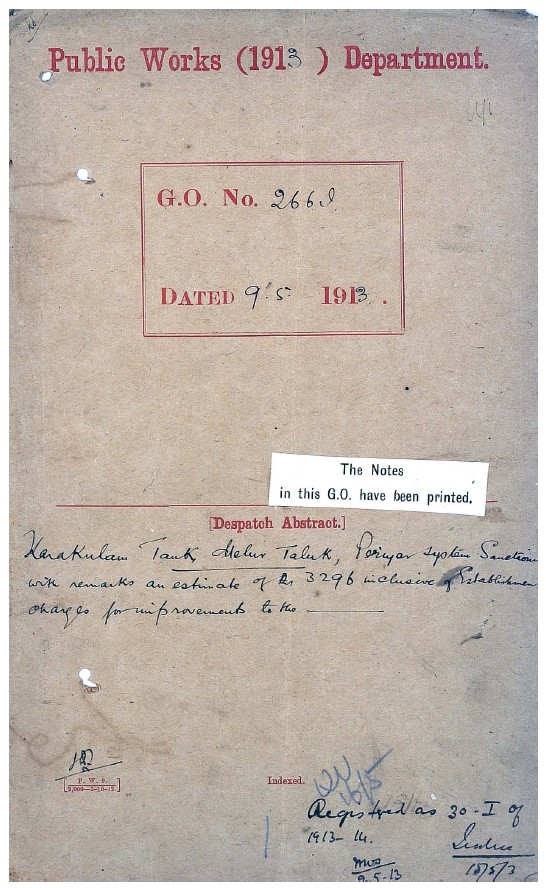 Public Works (1913) Department.
G.O. No. 266 I.
DATED 9.5. 1913.
The Notes
in this G.O. have been printed.
[Despatch Abstract.]
Karakulam Tank, Melur Taluk, Periyar System Sanction
with remarks an estimate of Rs 3296 inclusive of Establishmen
charges for improvements to the
P. W. 9.
Indexed.
16/5
Registered as 30-I of
1913-14.
9-5-13